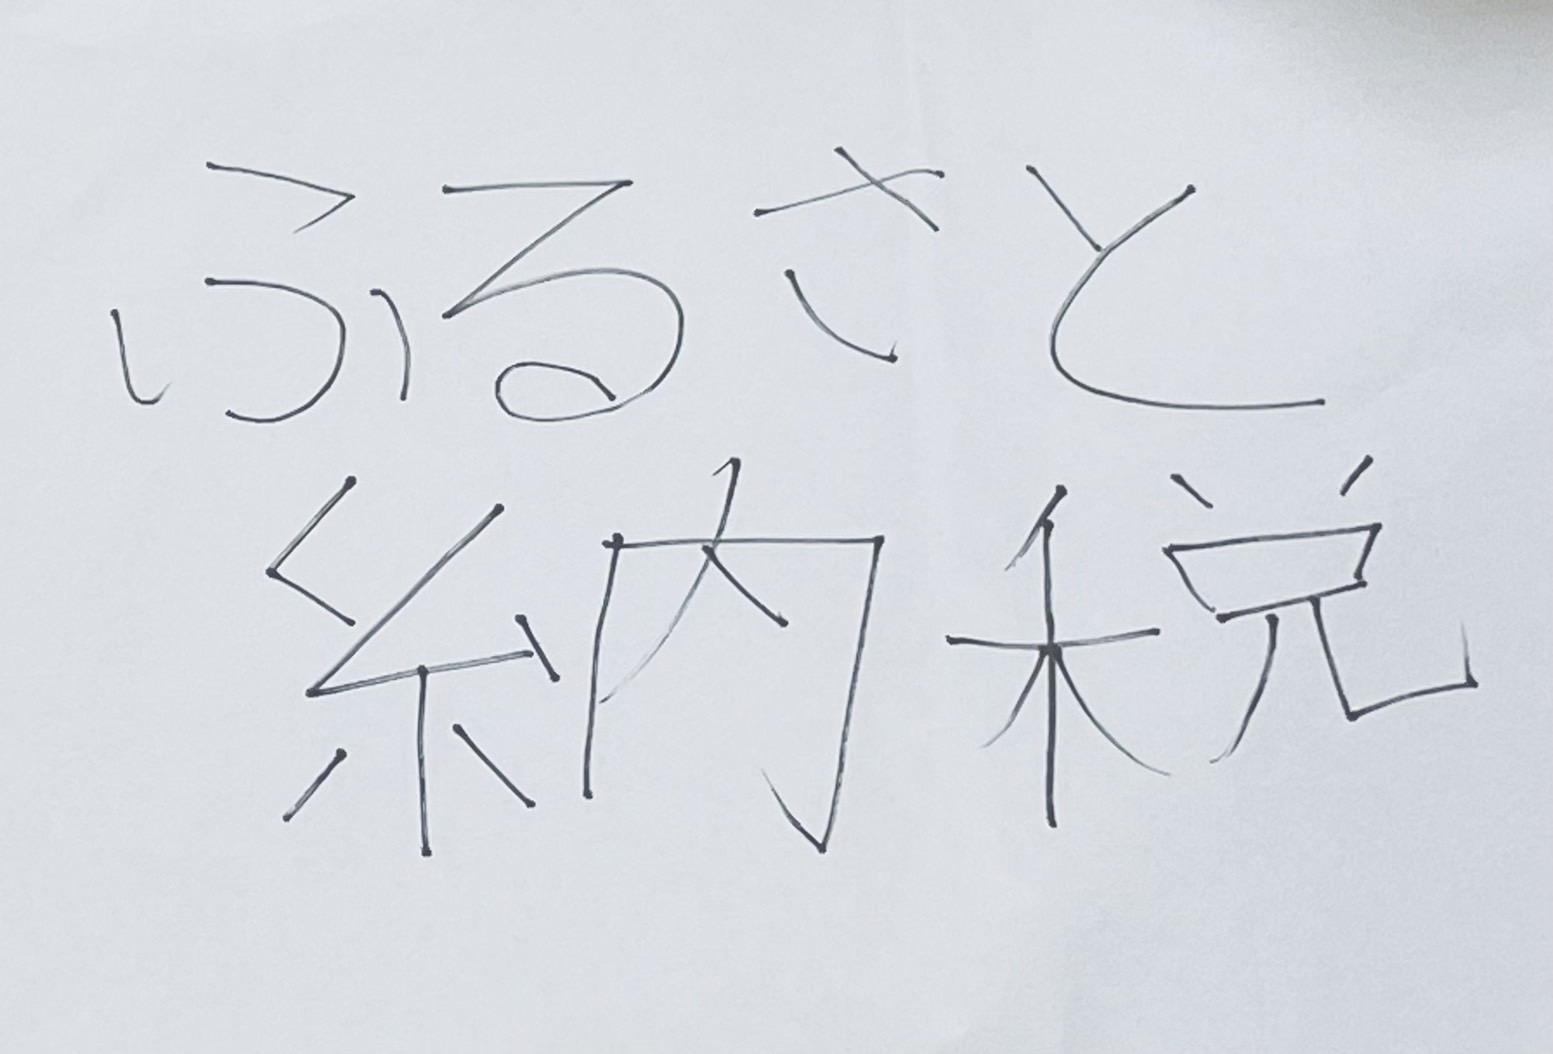 ふるさと
納税